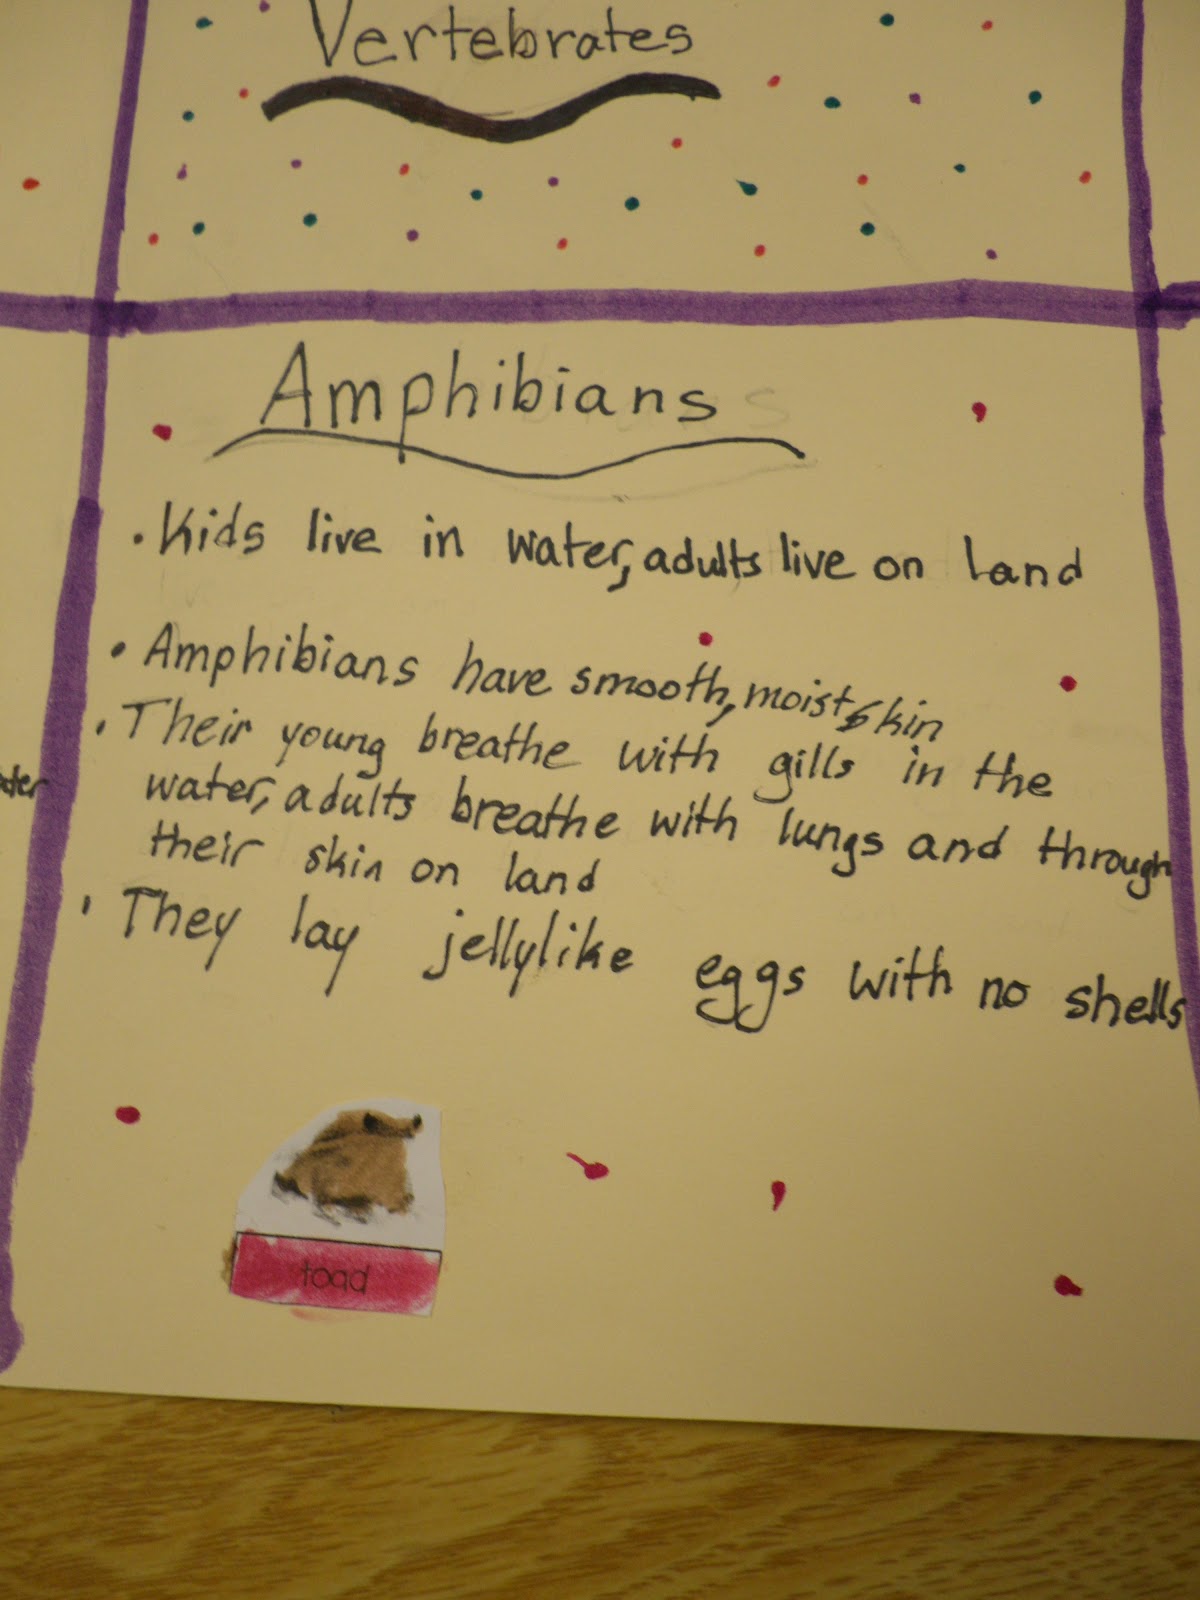 Vertebrates
Amphibians
• Kids live in water, adults live on land
• Amphibians have smooth, moist, skin
• Their young breathe with gills in the
water, adults breathe with lungs and through
their skin on land
• They lay jellylike eggs with no shells
toad